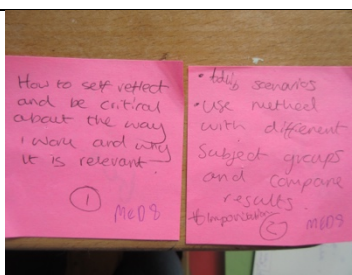 How to self reflect
and be critical
about the way
I work and why
it is relevant.
1
MeD8
• scenarios
• Use method
with different
subject groups
and compare
results.
MeD8